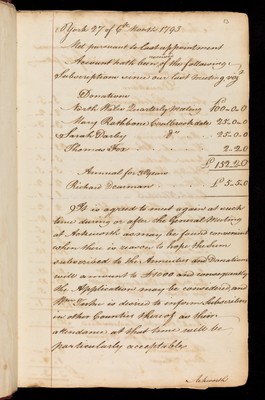 13
York 27 of 6th Month 1793
Met pursuant to last appointment
Account hath been received of the following
Subscriptions since our last meeting viz
Donations
North Wales Quarterly Meeting £100-0-0
Mary Rathbone Coalbrookdale 25-0-0
Sarah Darby do 25.0.0
Thomas Fox 2.2.0
£152.2.0
Annual for 3 Years
Richard Dearman £5.5.0
It is agreed to meet again at such
time during or after the General Meeting
at Ackworth as may be found convenient
when there is reason to hope the Sum
subscribed to the Annuities and Donations
will amount to £1000 and consequently
the Application may be considered, and
Wm Tuke is desired to inform Subscribers
in other Counties thereof as their
attendance at that time will be
particularly acceptable
Ackworth